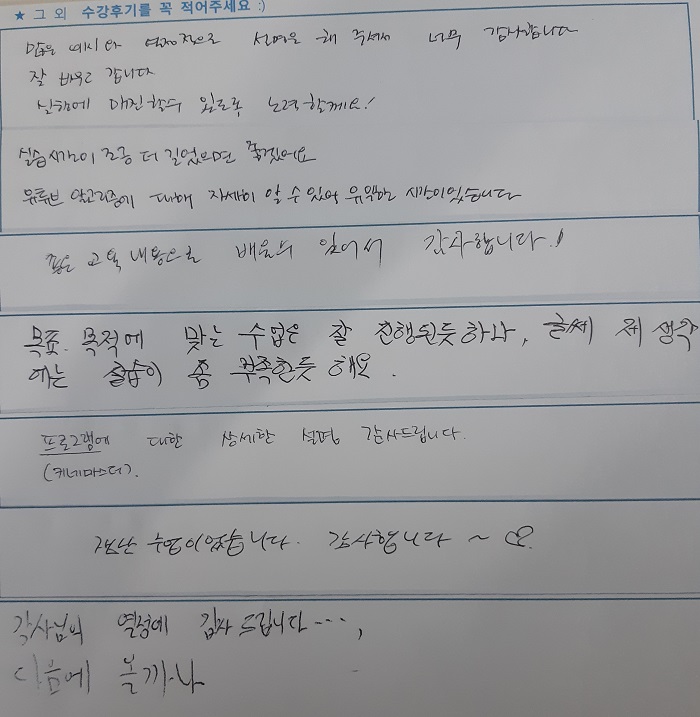 ★ 그 외 수강후기를 꼭 적어주세요 :)
많은 예시와 열정적으로 설명을 해 주셔서 너무 감사합니다
잘 배우고 갑니다
실행에 매진할수 있도록 노력할께요!
실습시간이 조금 더 길었으면 좋겠어요
유튜브 알고리즘에 대해 자세히 알 수 있어 유익한 시간이었습니다
좋은 교육내용으로 배울수 있어서 감사합니다!
목표. 목적에 맞는 수업은 잘 진행된듯하나, 글쎄 제 생각
에는 실습이 좀 부족한듯 해요.
프로그램에 대한 상세한 설명 감사드립니다.
(키네마스터).
재밌는 수업이었습니다. 감사합니다 ~ ♡.
강사님의 열정에 감사 드립니다…,
다음에 볼까나